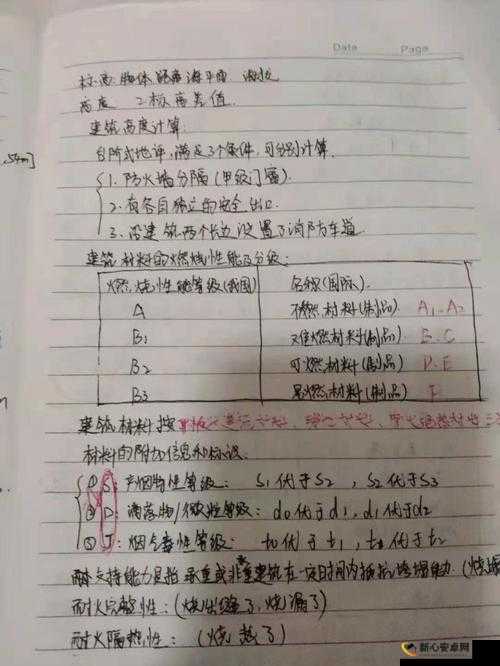 Date Page
标高:物体距离海平面
高度 2标高差值.
建筑高度计算:
台阶式地评,满足3个条件,可分别计算.
1.防火墙分隔(甲级门窗).
2.有各自独立的安全出口
3.沿建筑两个长边设置了消防车道
建筑材料的燃烧性能及分级:
燃烧性能等级(我国) 名称(国际).
A 不燃材料(制品) A1.A2
B1 难燃材料(制品) B.C
B2 可燃材料(制品) D.E
B3 易燃材料(制品) F
建筑材料按
材料的附加信息和标识.
① S:产烟特性等级: S1优于S2, S2优于S3
② D:滴落物/微粒等级: d0优于d1,d1优于d2
③ T:烟气毒性等级: t0优于t1, t1优于t2
耐火支持能力是指承重或非重建筑在一定时间内抵抗
耐火完整性:(烧出缝了,烧漏了)
耐火隔热性: (烧热了)
.54m]
新心安卓网